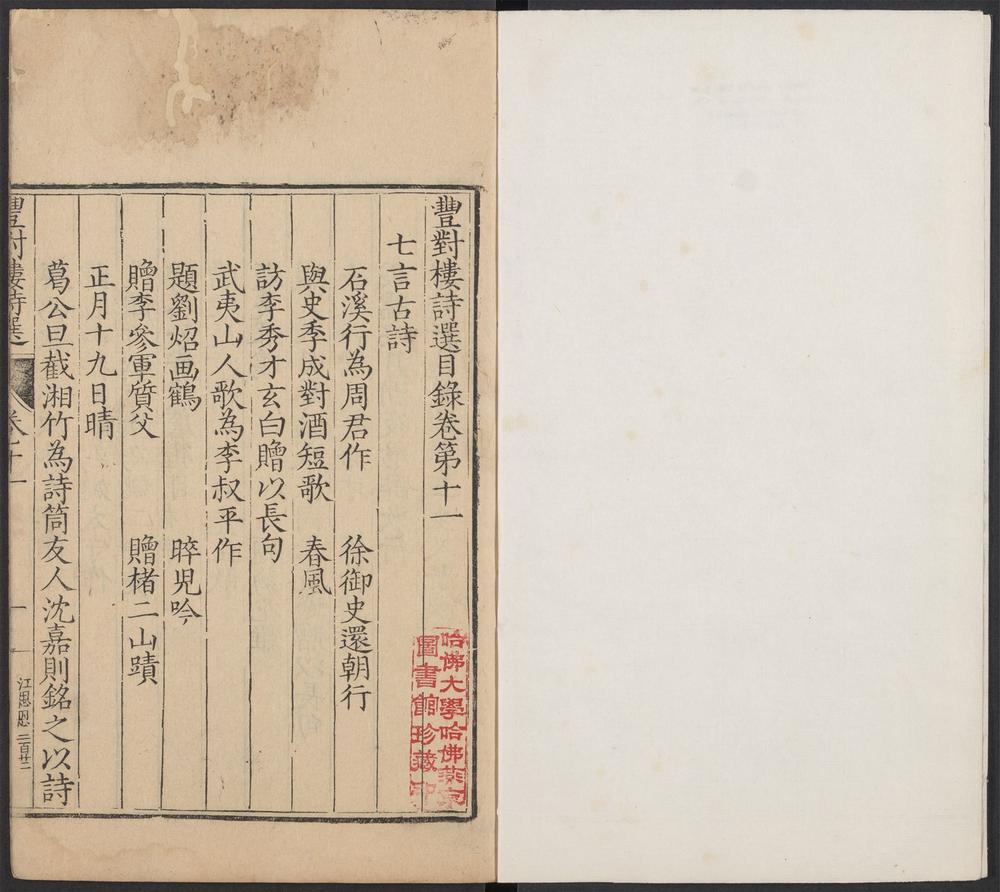 豐對樓詩選目錄卷第十一
七言古詩
石溪行為周君作 徐御史還朝行
與史季成對酒短歌 春風
訪李秀才玄白贈以長句
武夷山人歌為李叔平作
題劉炤画鶴 晬児吟
贈李參軍質父 贈楮二山蹟
正月十九日晴
葛公旦截湘竹為詩筒友人沈嘉則銘之以詩
豐對樓詩選 卷十一 一
江思恩 二百廿二
哈佛大學哈佛燕京
圖書館珍藏印